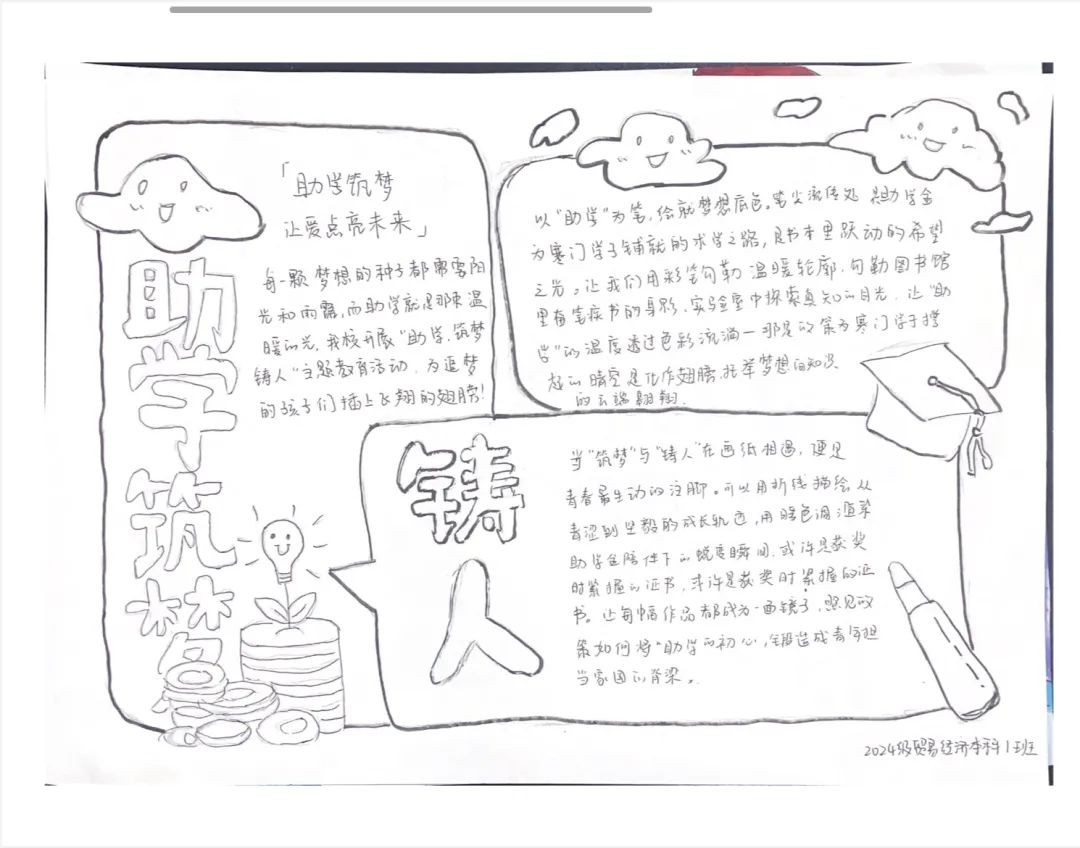 助学筑梦
铸人
「助学筑梦
让爱点亮未来」
每一颗梦想的种子都需要阳
光和雨露,而助学就是那束温
暖的光,我校开展"助学,筑梦
铸人"主题教育活动,为追梦
的孩子们插上飞翔的翅膀!
以"助学"为笔,绘就梦想底色。笔尖流传处 是助学金
为寒门学子铺就的求学之路,是书本里跃动的希望
之光。让我们用彩笔勾勒 温暖轮廓,勾勒图书馆
里奋笔疾书的身影,实验室中探索真知的目光,让"助
学"的温度透过色彩流淌—那是政策为寒门学子撑
起的晴空是化作翅膀,托举梦想向知识
的云端翱翔.
当"筑梦"与"铸人"在画纸相遇,便是
青春最生动的注脚。可以用折线描绘从
青涩到坚毅的成长轨迹,用暖色调渲染
助学金陪伴下的蜕变瞬间,或许是获奖
时紧握的证书,或许是获奖时紧握的证
书。让每幅作品都成为一面镜子,照见政
策如何将"助学的初心,锻造成青年担
当家国的脊梁。
2024级贸易经济本科1班